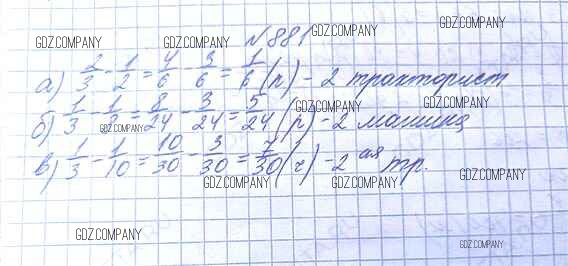 № 881
а) 2/3 - 1/2 = 4/6 - 3/6 = 1/6 (п) - 2 тракторист
б) 1/3 - 1/8 = 8/24 - 3/24 = 5/24 (р) - 2 машина
в) 1/3 - 1/10 = 10/30 - 3/30 = 7/30 (ч) - 2 ая тр.
GDZ.COMPANY
GDZ.COMPANY
GDZ.COMPANY
GDZ.COMPANY
GDZ.COMPANY
GDZ.COMPANY
GDZ.COMPANY
GDZ.COMPANY
GDZ.COMPANY
GDZ.COMPANY
GDZ.COMPANY
GDZ.COMPANY